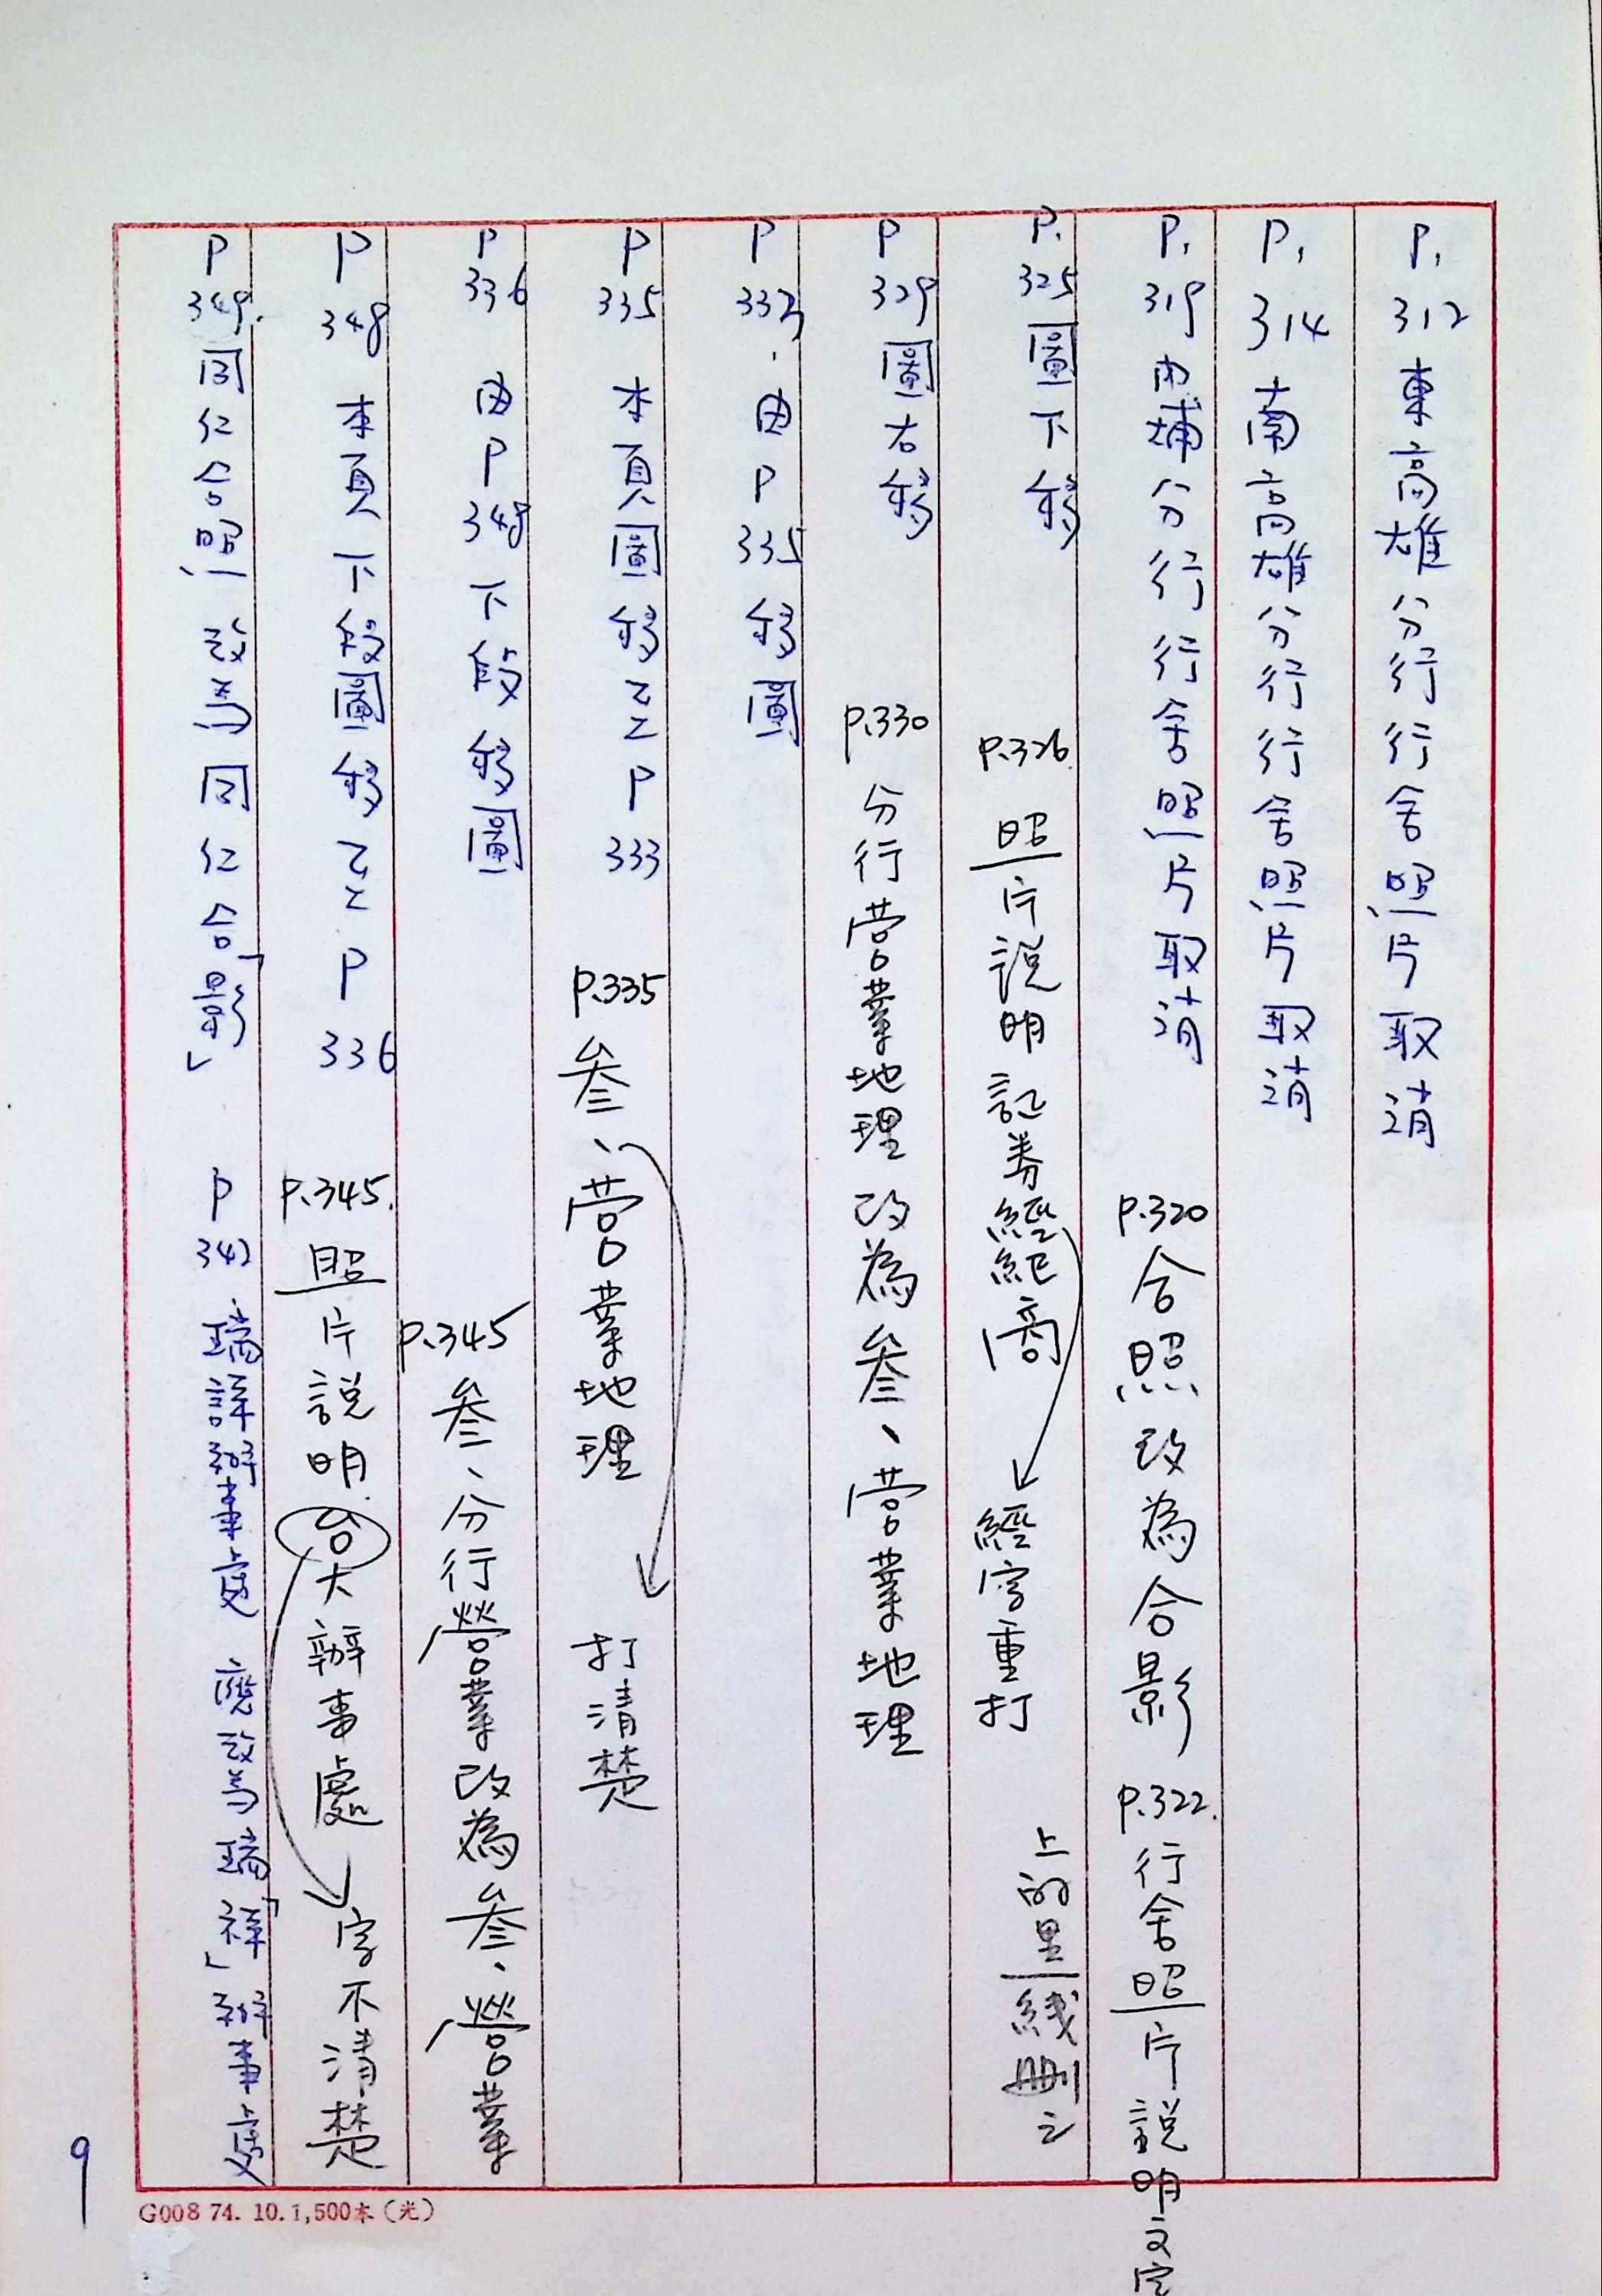 P. 312 東高雄分行行舍照片取消
P. 314 南高雄分行行舍照片取消
P. 319 內埔分行行舍照片取消 P.320 合照改為合影 P.322. 行舍照片說明文字
上的黑线刪之
P. 325 圖下移 P.326. 照片說明 証券經紀商 經字重打
P 329 圖右移 P.330 分行營業地理 改為 叁、營業地理
P 333. 由 P 335 移圖
P 335 本頁圖移至 P 333 P.335 叁、營業地理 打清楚
P 336 由 P 348 下段移圖 P.345 叁、分行營業改為 叁、營業
P 348 本頁下段圖移至 P 336 P.345. 照片說明 台大辦事處 字不清楚
P 349. 同仁合照 改 同仁合「影」 P 342 瑞詳辦事處 應改為 瑞「祥」辦事處
9
G008 74. 10. 1,500本（光）